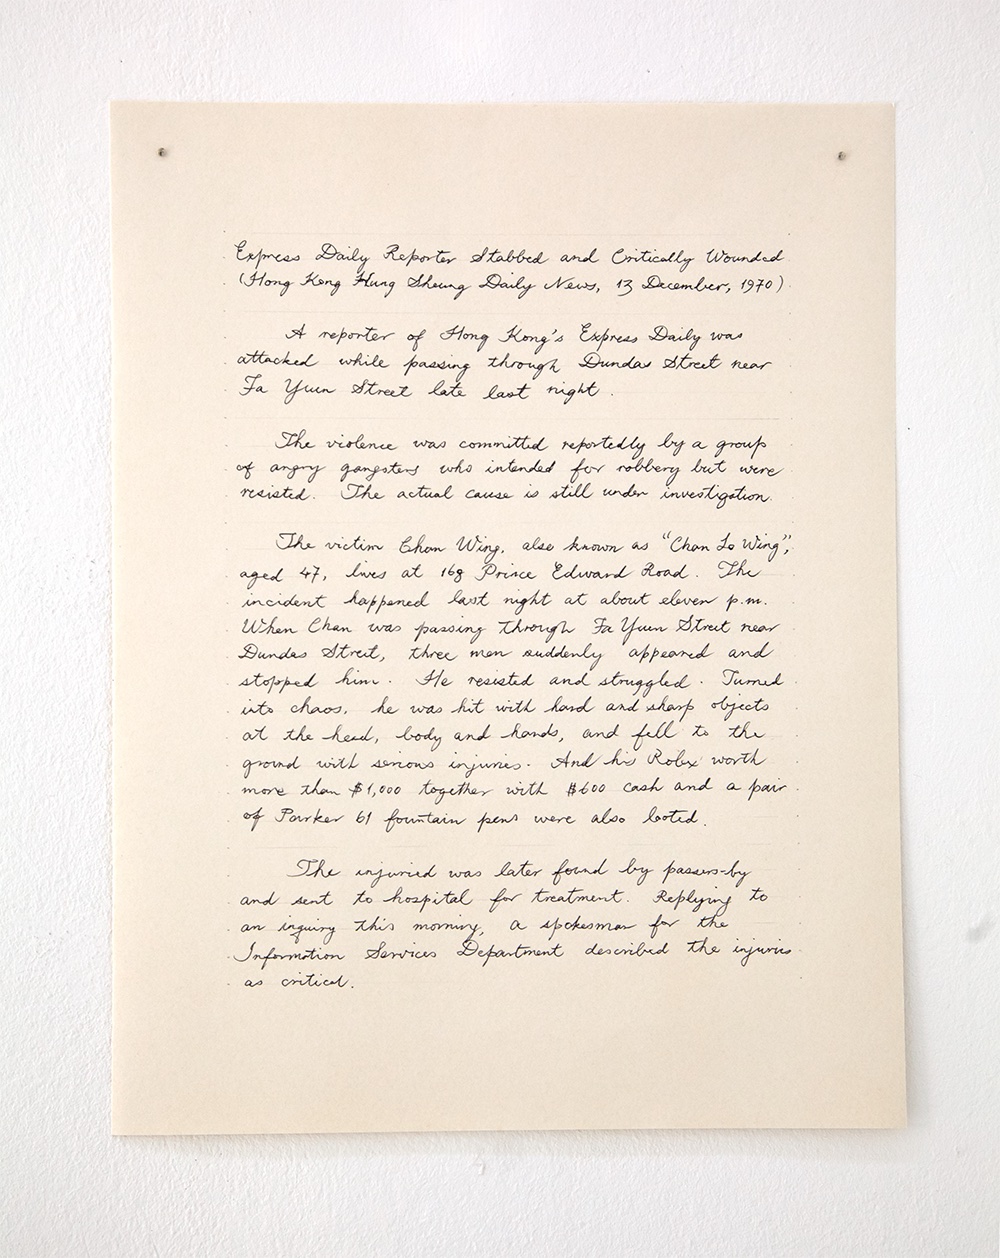 Express Daily Reporter Stabbed and Critically Wounded
(Hong Kong Hung Sheung Daily News, 13 December, 1970)
A reporter of Hong Kong's Express Daily was
attacked while passing through Dundas Street near
Fa Yuen Street late last night.
The violence was committed reportedly by a group
of angry gangsters who intended for robbery but were
resisted. The actual cause is still under investigation.
The victim Chan Wing, also known as "Chan Lo Wing",
aged 47, lives at 168 Prince Edward Road. The
incident happened last night at about eleven p.m.
When Chan was passing through Fa Yuen Street near
Dundas Street, three men suddenly appeared and
stopped him. He resisted and struggled. Turned
into chaos, he was hit with hard and sharp objects
at the head, body and hands, and fell to the
ground with serious injuries. And his Rolex worth
more than $1,000 together with $600 cash and a pair
of Parker 61 fountain pens were also looted.
The injuried was later found by passers-by
and sent to hospital for treatment. Replying to
an inquiry this morning, a spokesman for the
Information Services Department described the injuries
as critical.